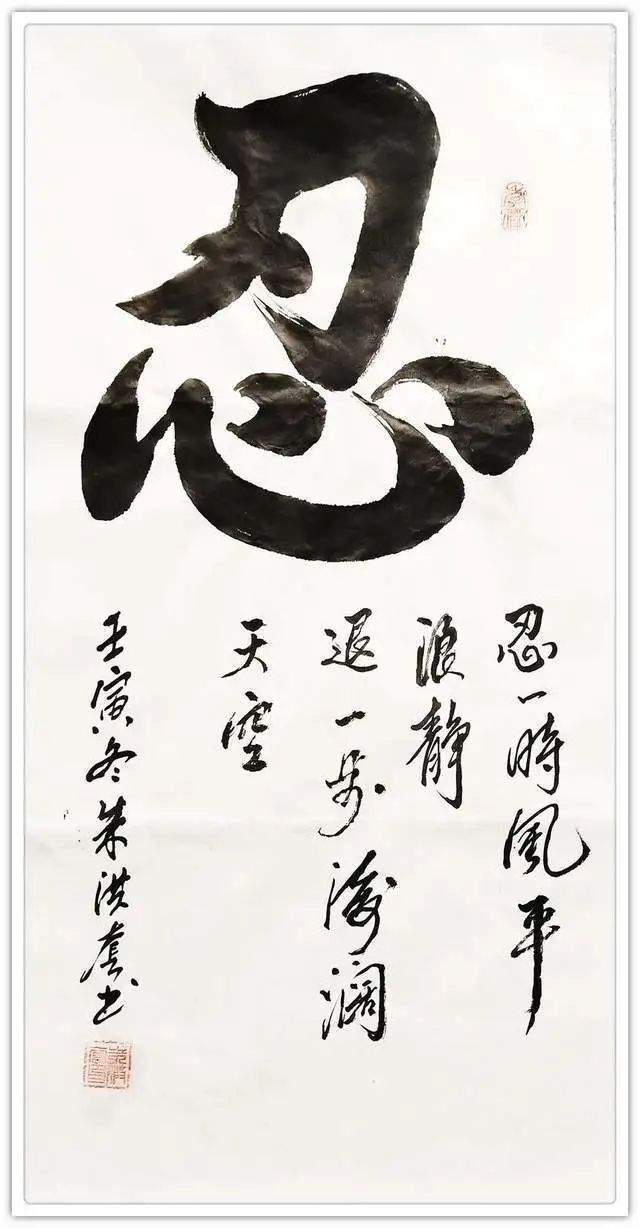 忍
忍一時風平
浪静
退一步海濶
天空
壬寅冬朱洪书